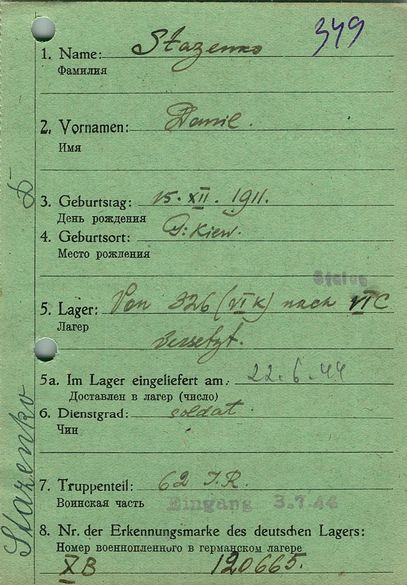 349
1. Name: Stazenko
Фамилия
2. Vornamen: Danil.
Имя
3. Geburtstag: 15. XII. 1911.
День рождения
4. Geburtsort: G. Kiew.
Место рождения
Stalag
5. Lager: Von 326 (VI K) nach VI C
Лагер
versetzt.
5a. Im Lager eingeliefert am: 22. 6. 44
Доставлен в лагер (число)
6. Dienstgrad: soldat.
Чин
7. Truppenteil: 62 I. R.
Воинская часть
Eingang 3.7.44
8. Nr. der Erkennungsmarke des deutschen Lagers:
Номер военнопленного в германском лагере
XB 120665.
Stazenko D